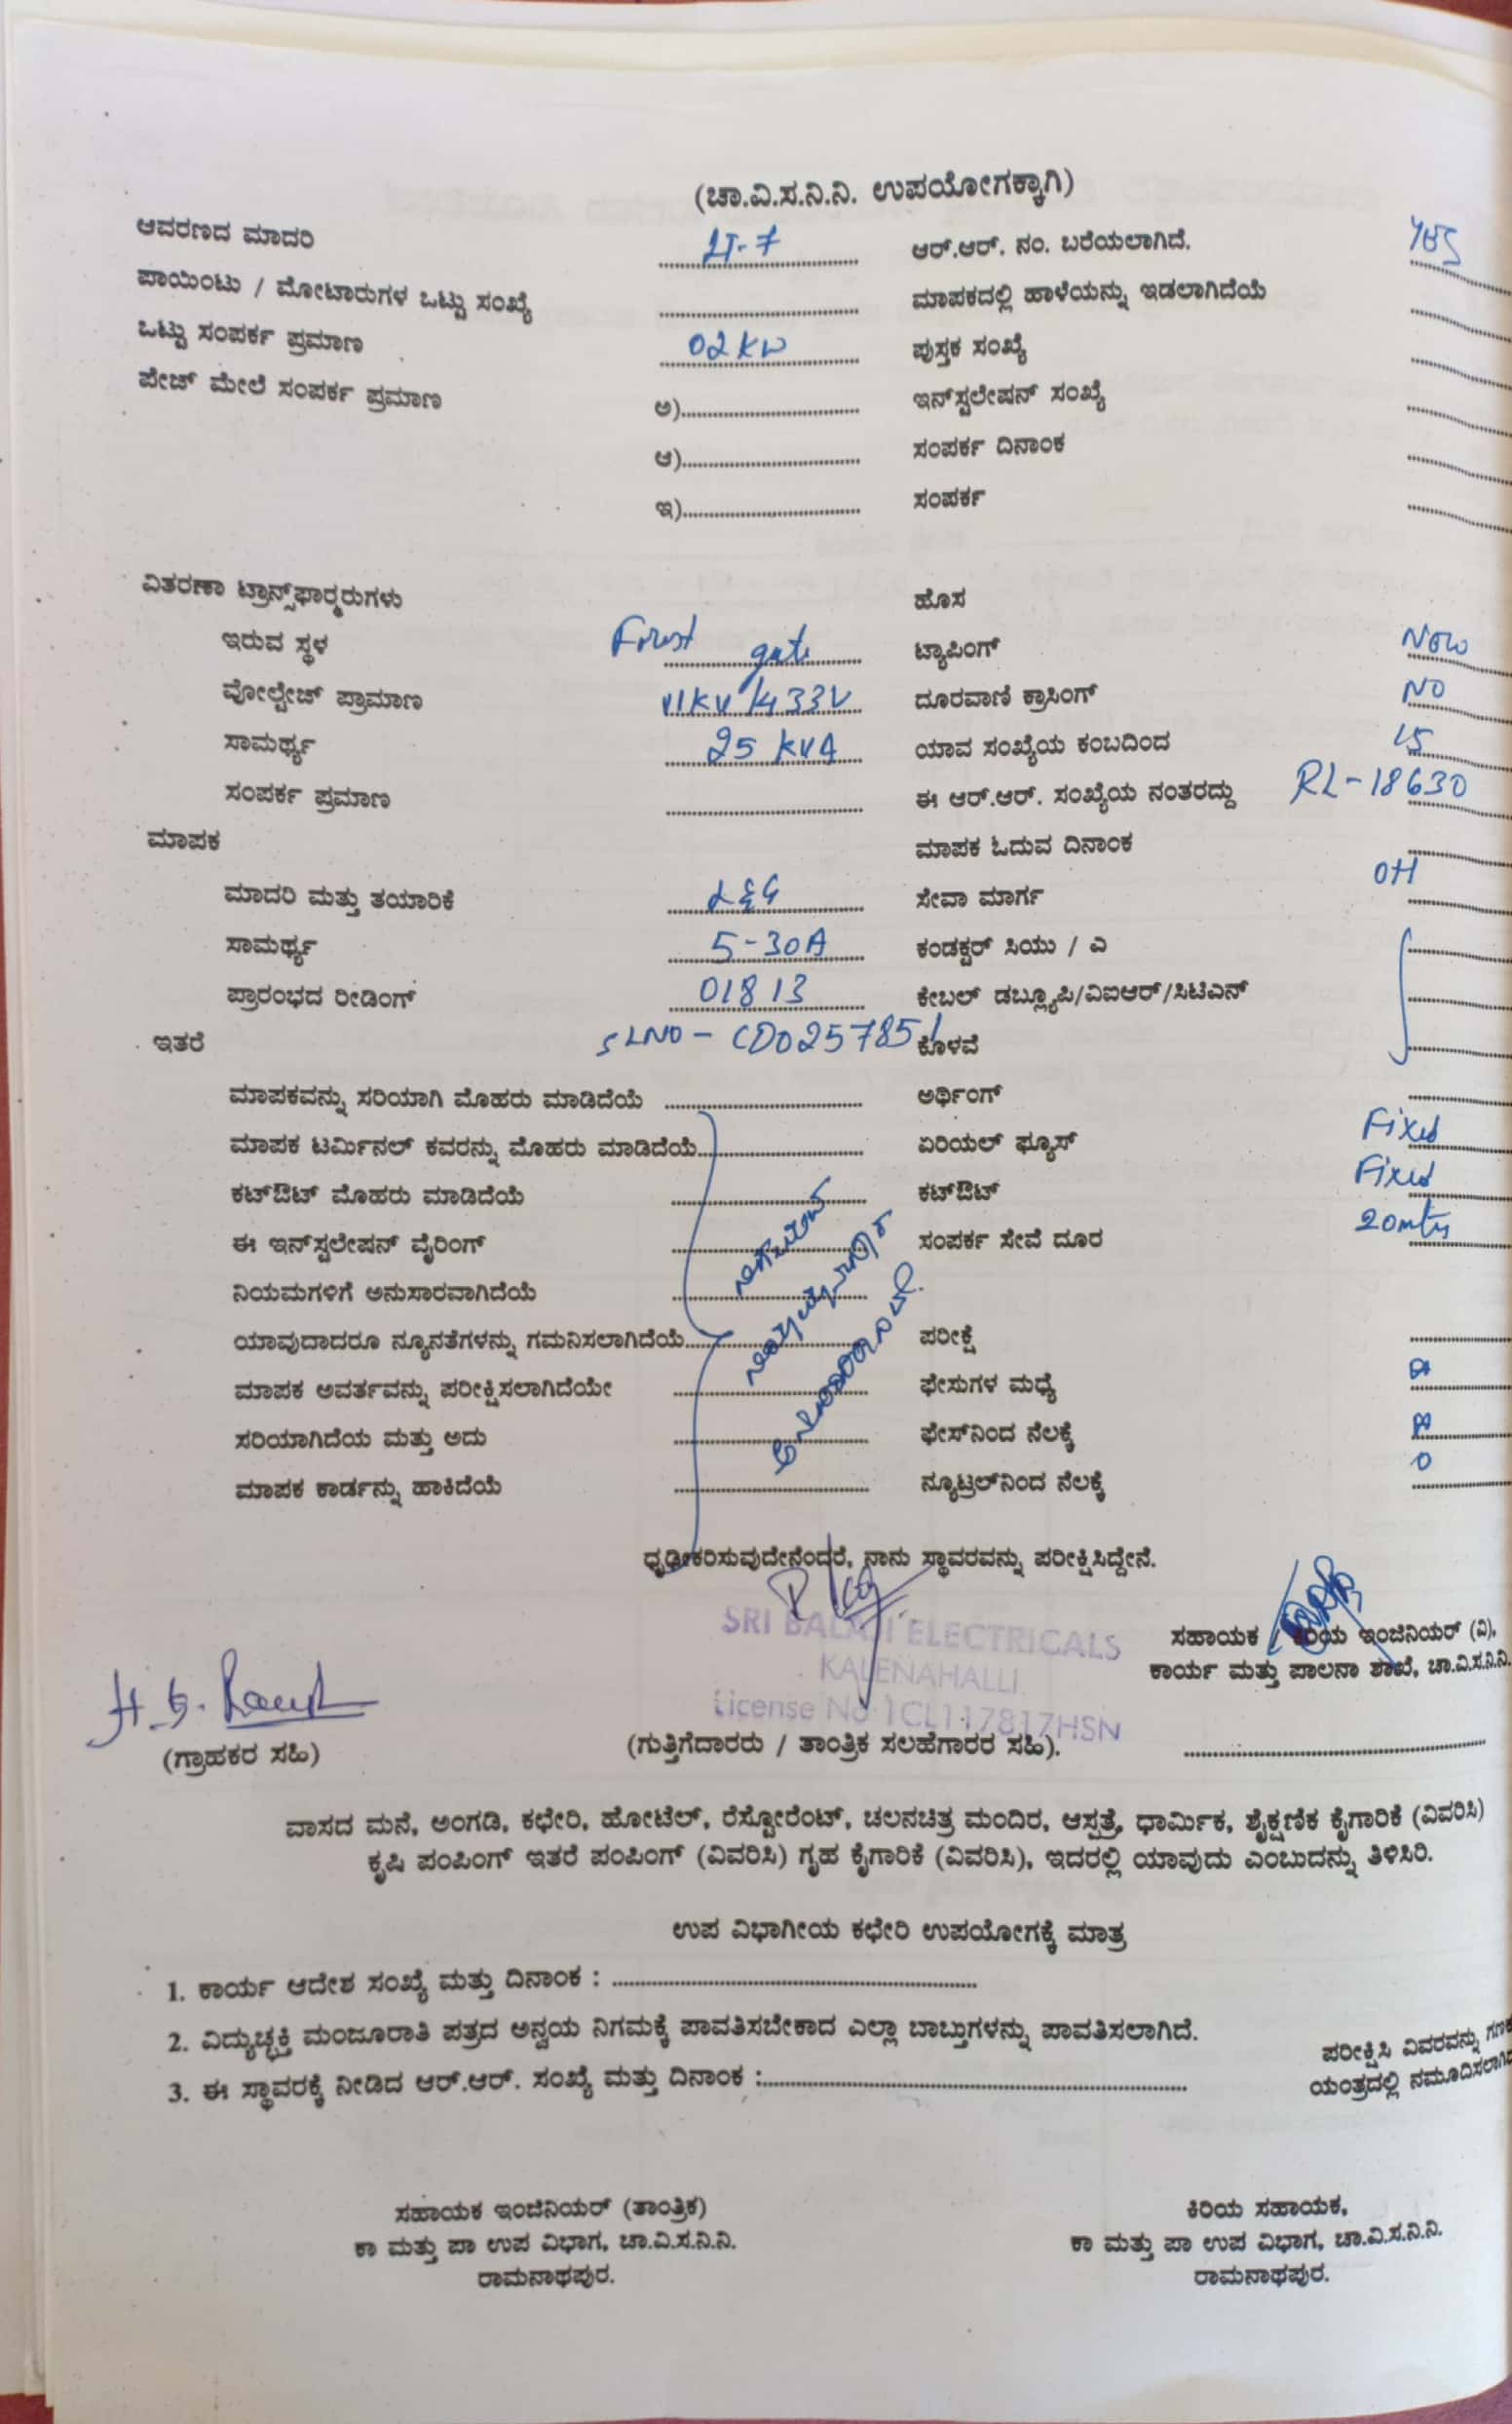 (ಚಾ.ವಿ.ಸ.ನಿ.ನಿ. ಉಪಯೋಗಕ್ಕಾಗಿ)
ಆವರಣದ ಮಾದರಿ LT-7 ಆರ್.ಆರ್. ನಂ. ಬರೆಯಲಾಗಿದೆ. yes
ಪಾಯಿಂಟು / ಮೋಟಾರುಗಳ ಒಟ್ಟು ಸಂಖ್ಯೆ ಮಾಪಕದಲ್ಲಿ ಹಾಳೆಯನ್ನು ಇಡಲಾಗಿದೆಯೆ
ಒಟ್ಟು ಸಂಪರ್ಕ ಪ್ರಮಾಣ 02 KW ಪುಸ್ತಕ ಸಂಖ್ಯೆ
ಪೇಜ್ ಮೇಲೆ ಸಂಪರ್ಕ ಪ್ರಮಾಣ ಅ) ಇನ್‌ಸ್ಟಲೇಷನ್ ಸಂಖ್ಯೆ
ಆ) ಸಂಪರ್ಕ ದಿನಾಂಕ
ಇ) ಸಂಪರ್ಕ
ವಿತರಣಾ ಟ್ರಾನ್ಸ್‌ಫಾರ್ಮರುಗಳು ಹೊಸ
ಇರುವ ಸ್ಥಳ gate ಟ್ಯಾಪಿಂಗ್ New
ವೋಲ್ಟೇಜ್ ಪ್ರಾಮಾಣ 11KV/433V ದೂರವಾಣಿ ಕ್ರಾಸಿಂಗ್ NO
ಸಾಮರ್ಥ್ಯ 25 KVA ಯಾವ ಸಂಖ್ಯೆಯ ಕಂಬದಿಂದ 15
ಸಂಪರ್ಕ ಪ್ರಮಾಣ ಈ ಆರ್.ಆರ್. ಸಂಖ್ಯೆಯ ನಂತರದ್ದು RL-18630
ಮಾಪಕ ಮಾಪಕ ಓದುವ ದಿನಾಂಕ
ಮಾದರಿ ಮತ್ತು ತಯಾರಿಕೆ L&G ಸೇವಾ ಮಾರ್ಗ OH
ಸಾಮರ್ಥ್ಯ 5-30A ಕಂಡಕ್ಟರ್ ಸಿಯು / ಎ
ಪ್ರಾರಂಭದ ರೀಡಿಂಗ್ 01813 ಕೇಬಲ್ ಡಬ್ಲ್ಯೂಪಿ/ವಿಐಆರ್/ಸಿಟಿಎನ್
ಇತರೆ SLNO - CD0257851 ಕೊಳವೆ
ಮಾಪಕವನ್ನು ಸರಿಯಾಗಿ ಮೊಹರು ಮಾಡಿದೆಯೆ ಅರ್ಥಿಂಗ್
ಮಾಪಕ ಟರ್ಮಿನಲ್ ಕವರನ್ನು ಮೊಹರು ಮಾಡಿದೆಯೆ ಏರಿಯಲ್ ಫ್ಯೂಸ್ Fixed
ಕಟ್‌ಔಟ್ ಮೊಹರು ಮಾಡಿದೆಯೆ ಕಟ್‌ಔಟ್ Fixed
ಈ ಇನ್‌ಸ್ಟಲೇಷನ್ ವೈರಿಂಗ್ ಸಂಪರ್ಕ ಸೇವೆ ದೂರ 20mts
ನಿಯಮಗಳಿಗೆ ಅನುಸಾರವಾಗಿದೆಯೆ
ಯಾವುದಾದರೂ ನ್ಯೂನತೆಗಳನ್ನು ಗಮನಿಸಲಾಗಿದೆಯೆ ಪರೀಕ್ಷೆ
ಮಾಪಕ ಅವರ್ತವನ್ನು ಪರೀಕ್ಷಿಸಲಾಗಿದೆಯೇ ಫೇಸುಗಳ ಮಧ್ಯೆ
ಸರಿಯಾಗಿದೆಯ ಮತ್ತು ಅದು ಫೇಸ್‌ನಿಂದ ನೆಲಕ್ಕೆ
ಮಾಪಕ ಕಾರ್ಡನ್ನು ಹಾಕಿದೆಯೆ ನ್ಯೂಟ್ರಲ್‌ನಿಂದ ನೆಲಕ್ಕೆ 0
ಧೃಢೀಕರಿಸುವುದೇನೆಂದರೆ, ನಾನು ಸ್ಥಾವರವನ್ನು ಪರೀಕ್ಷಿಸಿದ್ದೇನೆ.
SRI BALAJI ELECTRICALS
KALENAHALLI
License No 1CL117817HSN
ಸಹಾಯಕ / ಕಿರಿಯ ಇಂಜಿನಿಯರ್ (ವಿ),
ಕಾರ್ಯ ಮತ್ತು ಪಾಲನಾ ಶಾಖೆ, ಚಾ.ವಿ.ಸ.ನಿ.ನಿ.
(ಗ್ರಾಹಕರ ಸಹಿ) (ಗುತ್ತಿಗೆದಾರರು / ತಾಂತ್ರಿಕ ಸಲಹೆಗಾರರ ಸಹಿ).
ವಾಸದ ಮನೆ, ಅಂಗಡಿ, ಕಛೇರಿ, ಹೋಟೆಲ್, ರೆಸ್ಟೋರೆಂಟ್, ಚಲನಚಿತ್ರ ಮಂದಿರ, ಆಸ್ಪತ್ರೆ, ಧಾರ್ಮಿಕ, ಶೈಕ್ಷಣಿಕ ಕೈಗಾರಿಕೆ (ವಿವರಿಸಿ)
ಕೃಷಿ ಪಂಪಿಂಗ್ ಇತರೆ ಪಂಪಿಂಗ್ (ವಿವರಿಸಿ) ಗೃಹ ಕೈಗಾರಿಕೆ (ವಿವರಿಸಿ), ಇದರಲ್ಲಿ ಯಾವುದು ಎಂಬುದನ್ನು ತಿಳಿಸಿರಿ.
ಉಪ ವಿಭಾಗೀಯ ಕಛೇರಿ ಉಪಯೋಗಕ್ಕೆ ಮಾತ್ರ
1. ಕಾರ್ಯ ಆದೇಶ ಸಂಖ್ಯೆ ಮತ್ತು ದಿನಾಂಕ :
2. ವಿದ್ಯುಚ್ಛಕ್ತಿ ಮಂಜೂರಾತಿ ಪತ್ರದ ಅನ್ವಯ ನಿಗಮಕ್ಕೆ ಪಾವತಿಸಬೇಕಾದ ಎಲ್ಲಾ ಬಾಬ್ತುಗಳನ್ನು ಪಾವತಿಸಲಾಗಿದೆ.
3. ಈ ಸ್ಥಾವರಕ್ಕೆ ನೀಡಿದ ಆರ್.ಆರ್. ಸಂಖ್ಯೆ ಮತ್ತು ದಿನಾಂಕ :
ಪರೀಕ್ಷಿಸಿ ವಿವರವನ್ನು
ಯಂತ್ರದಲ್ಲಿ
ಸಹಾಯಕ ಇಂಜಿನಿಯರ್ (ತಾಂತ್ರಿಕ) ಕಿರಿಯ ಸಹಾಯಕ,
ಕಾ ಮತ್ತು ಪಾ ಉಪ ವಿಭಾಗ, ಚಾ.ವಿ.ಸ.ನಿ.ನಿ. ಕಾ ಮತ್ತು ಪಾ ಉಪ ವಿಭಾಗ, ಚಾ.ವಿ.ಸ.ನಿ.ನಿ.
ರಾಮನಾಥಪುರ. ರಾಮನಾಥಪುರ.